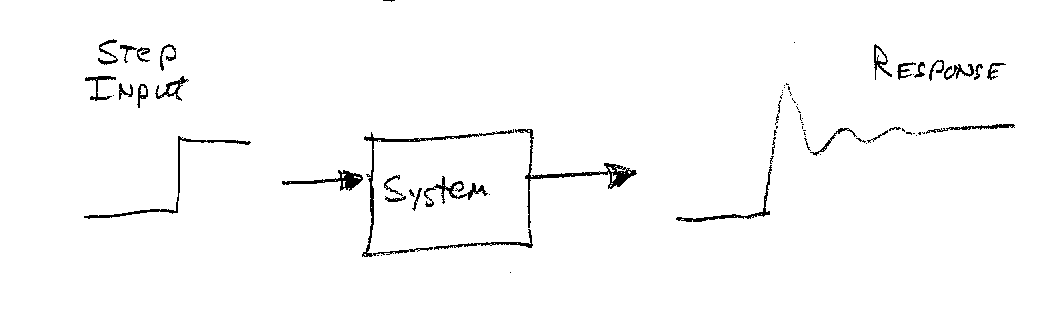 Step
Input
System
RESPONSE